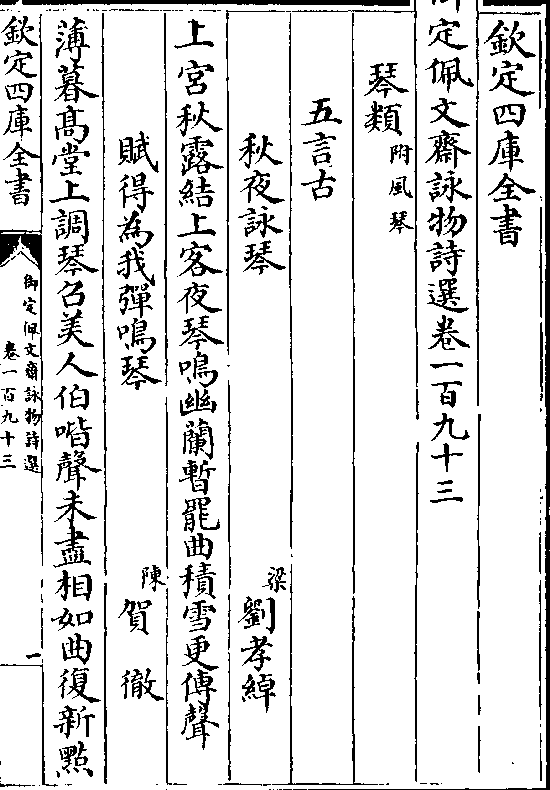 欽定四庫全書
御定佩文齋詠物詩選卷一百九十三
琴類附風琴
五言古
秋夜詠琴 梁劉孝綽
上宮秋露結上客夜琴鳴幽蘭暫罷曲積雪更傳聲
賦得為我彈鳴琴 陳賀徹
薄暮髙堂上調琴召美人伯喈聲未盡相如曲復新點
欽定四庫全書
御定佩文齋詠物詩選
卷一百九十三
一